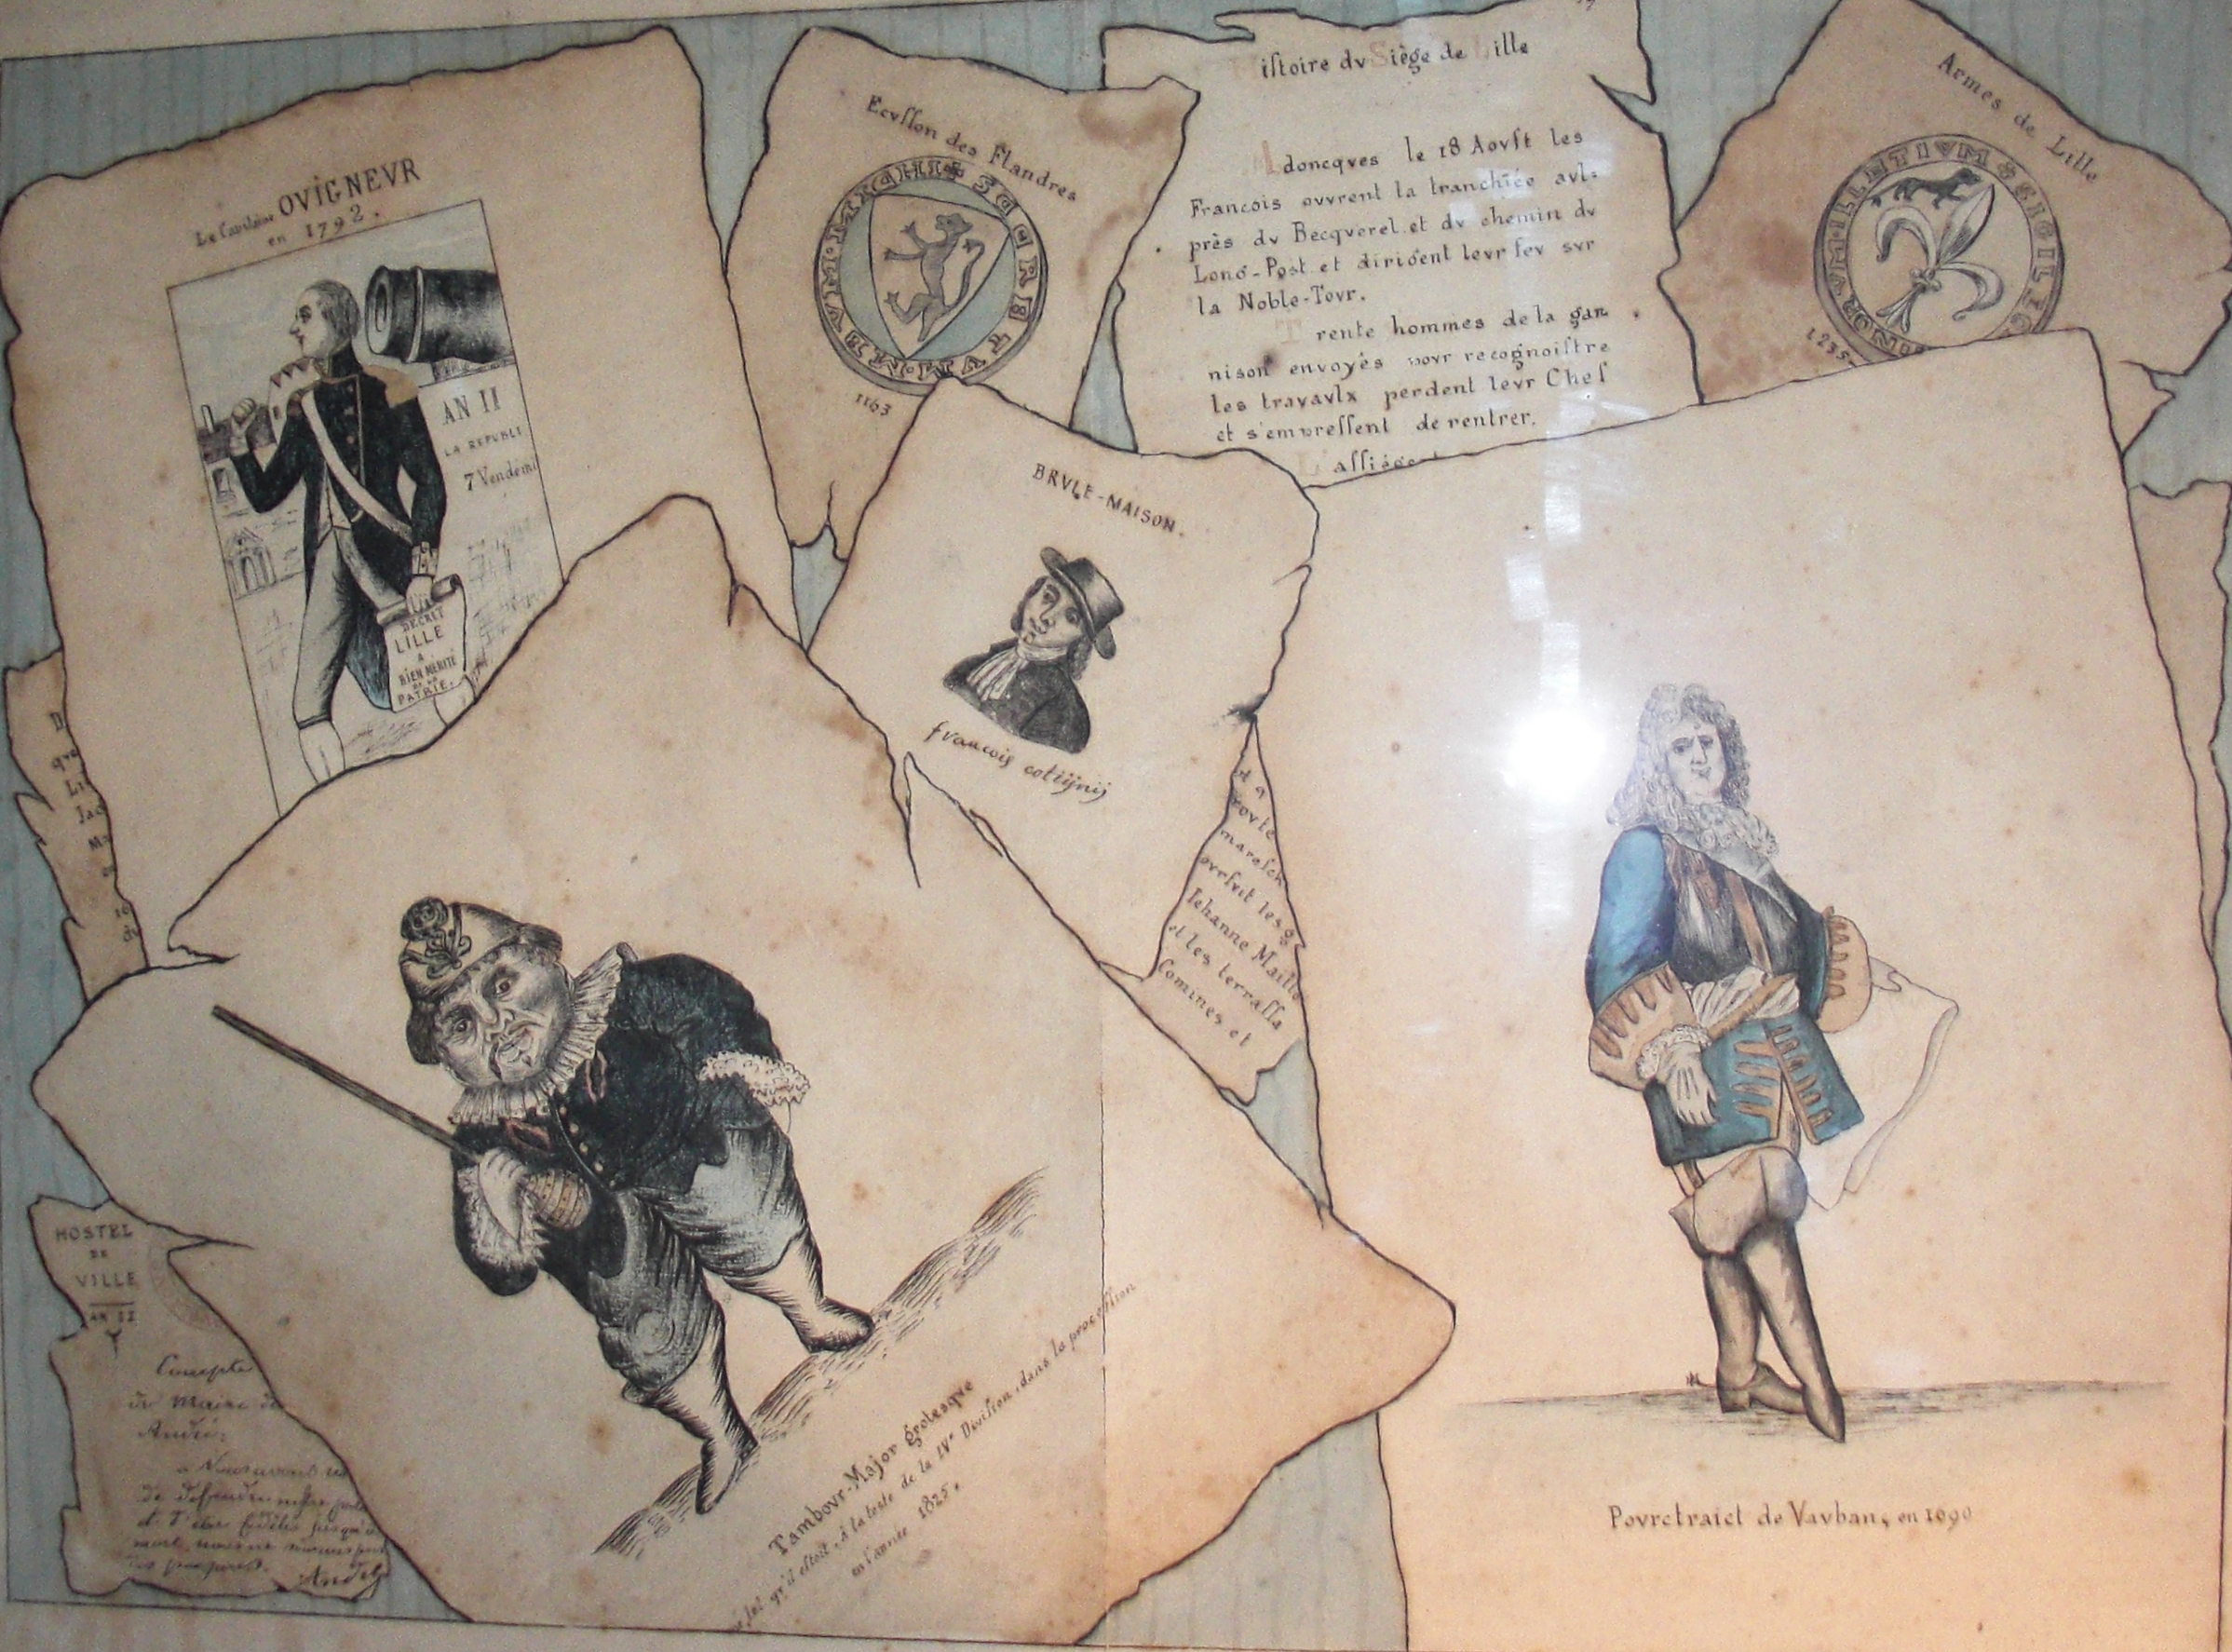 Le Capitaine OVIGNEVR
en 1792.
AN II
LA REPUBLI
7 Vendémi
DECRET
LILLE
A
BIEN MÉRITÉ
DE LA
PATRIE.
Ecvſſon des Flandres
1163
Hiſtoire dv Siège de Lille
Adoncqves le 18 Aovſt les
Francois ovvrent la tranchiée avl=
près dv Becqverel et dv chemin dv
Long-Post et dirigent levr fev svr
la Noble-Tovr.
Trente hommes de la gar
nison envoyés povr recognoiſtre
les travavlx perdent levr Chef
et s'empreſſent de rentrer.
L'aſſiége
Armes de Lille
1235
BRVLE-MAISON.
francois cottijnij
et a
rovte
mareſch
ovrſvit les g
Iehanne Maillo
et les terraſſa
Comines et
D
qve
Li
Jac
Ma
16
HOSTEL
DE
VILLE
AN II
Compte
du Maire
André:
de deffendre
mort
André
Tambovr-Major grotesqve
tel qv'il eſtoit, à la teste de la IVe Diviſion, dans la proceſſion
en l'année 1825.
Povrctraict de Vavban, en 1690